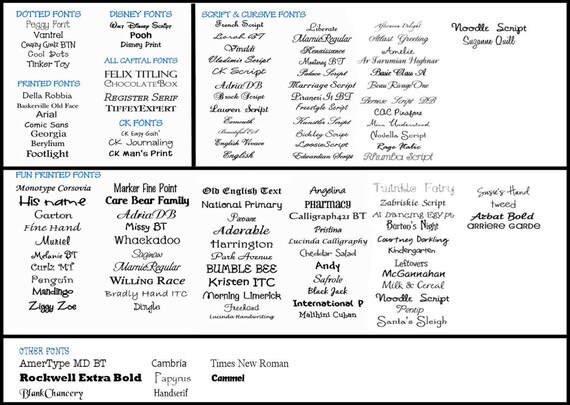 DOTTED FONTS
Peggy Font
Vantrel
Crazy Girlz BTN
Cool Dots
Tinker Toy
PRINTED FONTS
Della Robbia
Baskerville Old Face
Arial
Comic Sans
Georgia
Berylium
Footlight
DISNEY FONTS
Walt Disney Script
Pooh
Disney Print
ALL CAPITAL FONTS
FELIX TITLING
CHOCOLATEBOX
REGISTER SERIF
TIFFEYEXPERT
CK FONTS
CK Easy Goin'
CK Journaling
CK Man's Print
SCRIPT & CURSIVE FONTS
French Script
Larah BT
Vivaldi
Vladimir Script
CK Script
AdriaDB
Brock Script
Lauren Script
Exmouth
Beautiful ES
English Vivace
English
Liberate
MamieRegular
Renaissance
Murray BT
Palace Script
Marriage Script
Pranesi It BT
Freestyle Script
Kunstler Script
Bickley Script
LooseScript
Edwardian Script
Afternoon Delight
Atlast Greeting
Amelie
Ar Tarumian Highmar
Basic Class A
Beau RivageOne
Bernese Script DB
CAC Pinafore
Man Understood
Nadella Script
Rage Italic
Rhumba Script
Noodle Script
Suzanne Quill
FUN PRINTED FONTS
Monotype Corsovia
His name
Gaston
Fine Hand
Muriel
Melanie BT
Curlz MT
Penguin
Mandingo
Ziggy Zoe
Marker Fine Point
Care Bear Family
AdriaDB
Missy BT
Whackadoo
Saginaw
MamieRegular
Willing Race
Bradly Hand ITC
Dingle
Old English Text
National Primary
Pavane
Adorable
Harrington
Park Avenue
BUMBLE BEE
Kristen ITC
Morning Limerick
Freehand
Lucinda Handwriting
Angelina
PHARMACY
Calligraph421 BT
Pristina
Lucinda Calligraphy
Cheddar Salad
Andy
Safrole
Black Jack
International P
Malihini Cuban
Twinkle Fairy
Zabriskie Script
Al Dancing Egypt
Barton's Night
Courtney Dorkling
Kindergarten
Leftovers
McGannahan
Milk & Cereal
Noodle Script
Penup
Santa's Sleigh
Susie's Hand
tweed
Azbat Bold
ARRIERE GARDE
OTHER FONTS
AmerType MD BT
Rockwell Extra Bold
BlankChancery
Cambria
Papyrus
Handserif
Times New Roman
Cammel